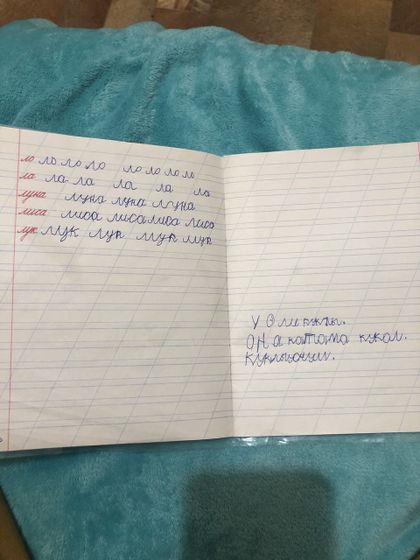 ло ло ло ло ло ло ло ло ло
ла ла ла ла ла ла
луна луна луна луна
лиса лиса лиса лиса лиса
лук лук лук лук лук
У О ли куклы.
ОН а катала кукол.
Куклы